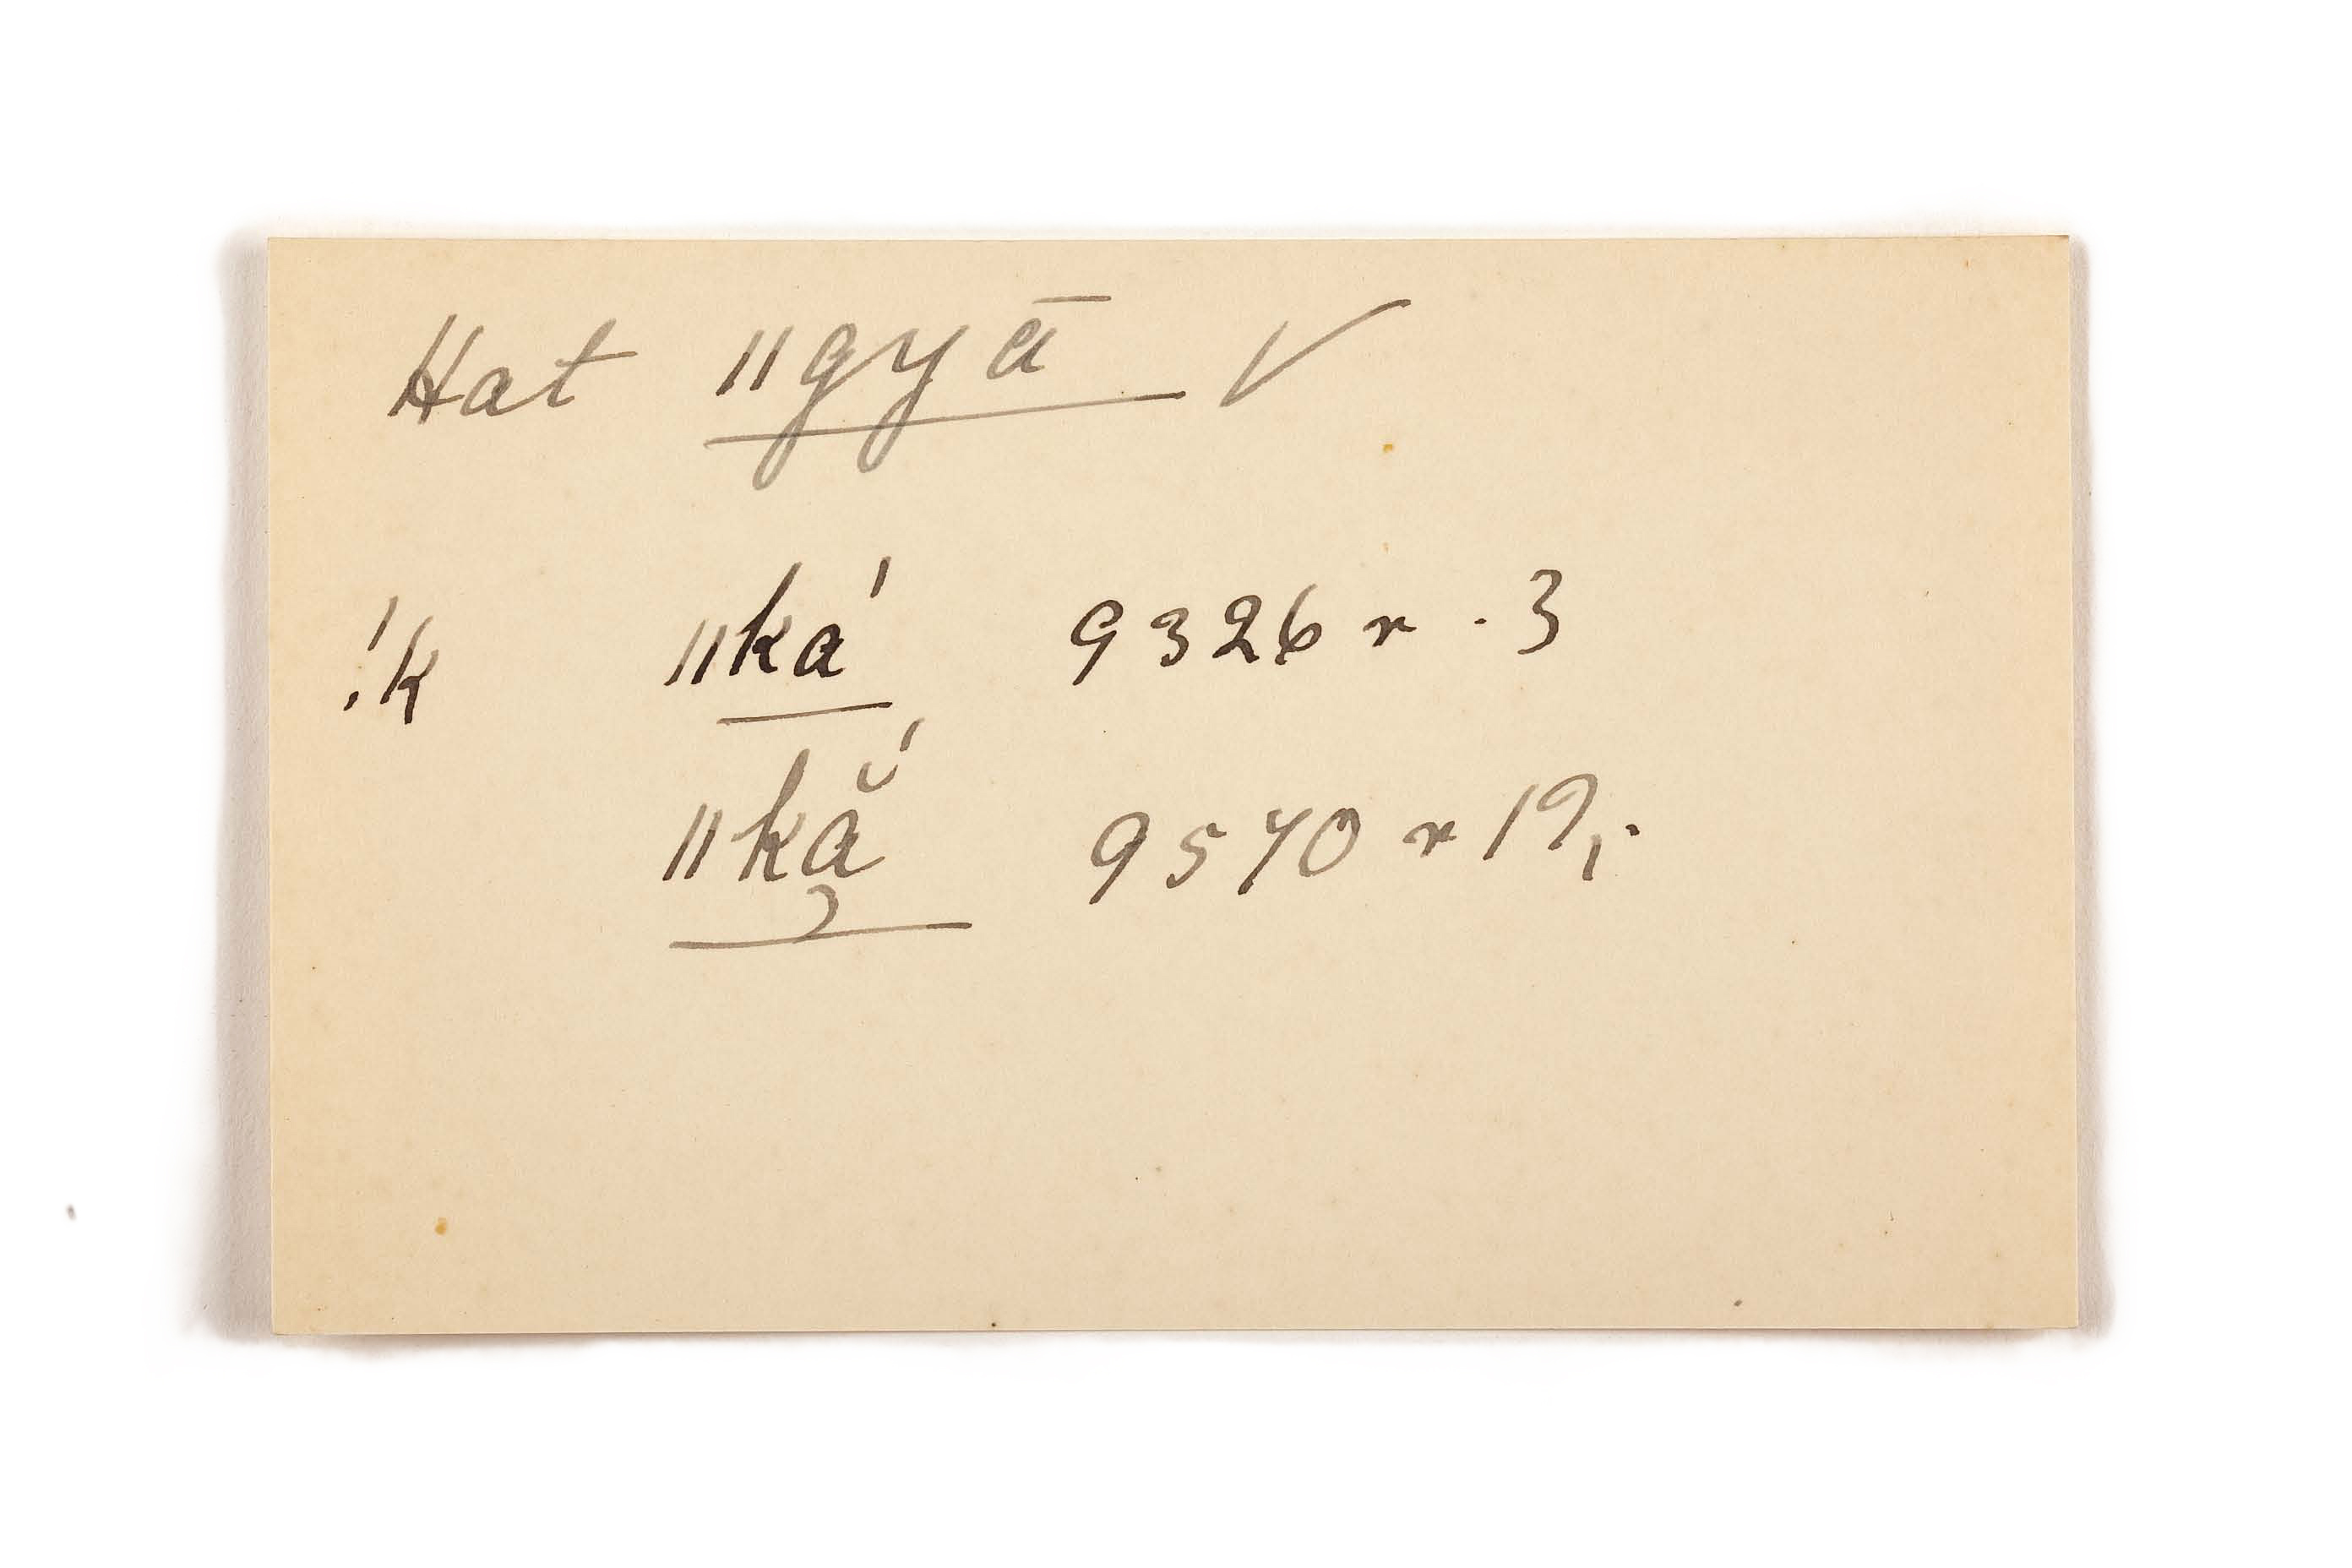 Hat ǁgyā ✓
!k ǁká 9326 r. 3
ǁką̆́ 9570 r 19,.